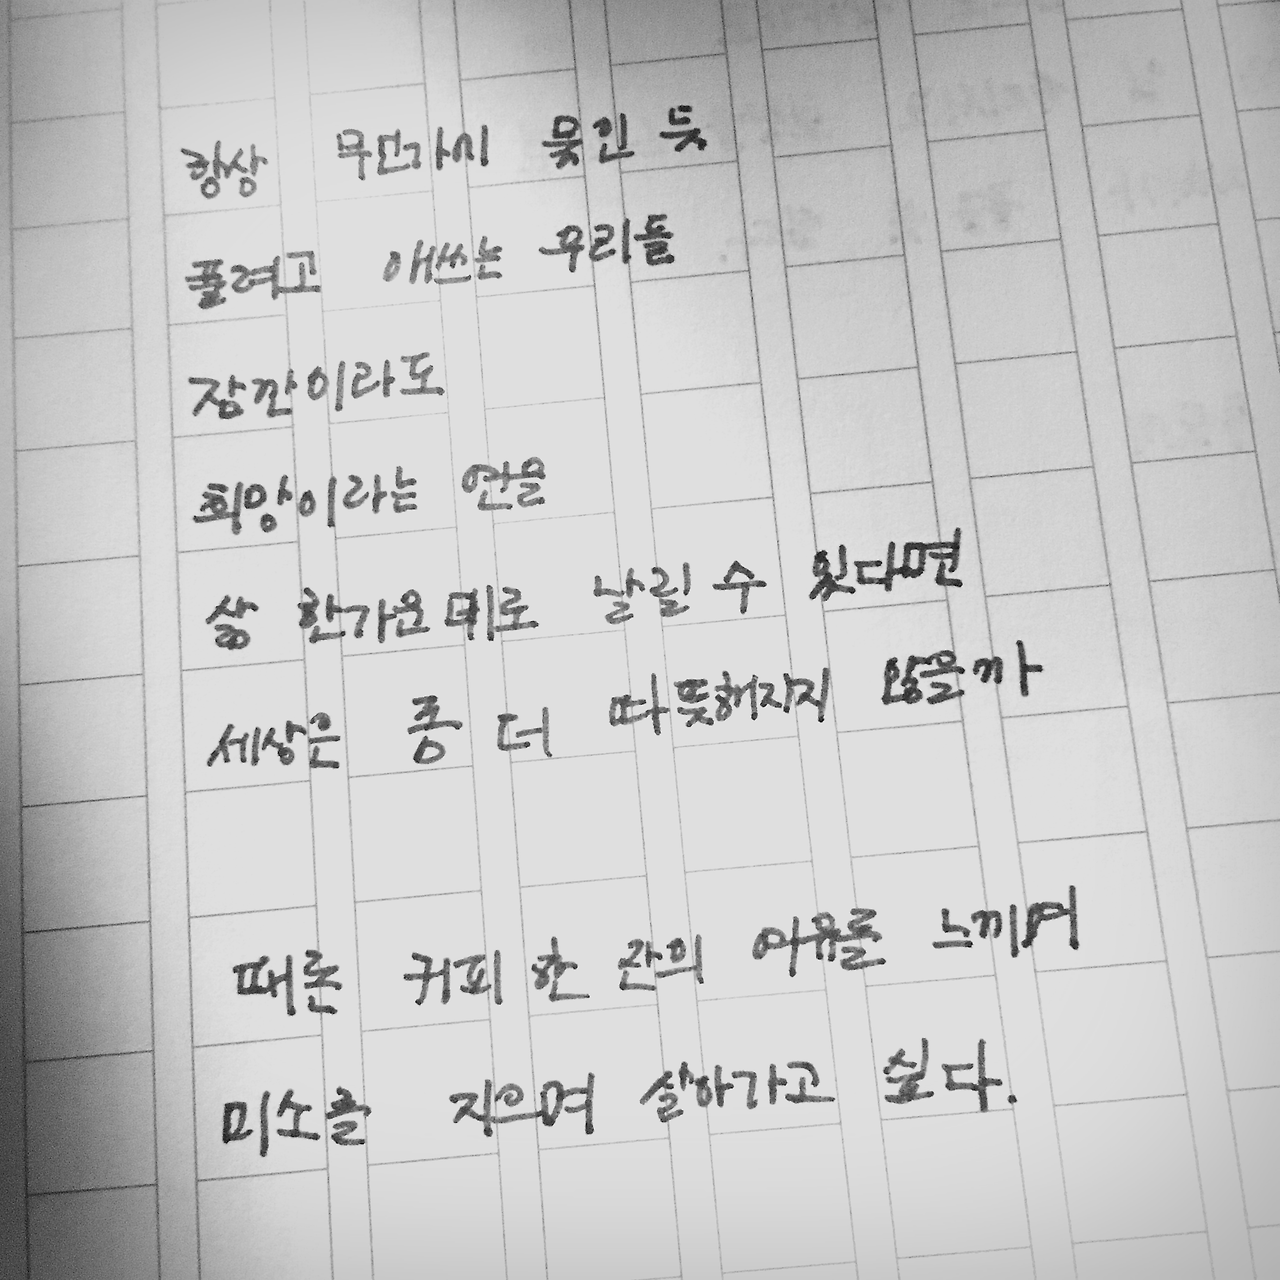 항상 무언가에 묶인 듯
풀려고 애쓰는 우리들
잠깐이라도
희망이라는 연을
삶 한가운데로 날릴 수 있다면
세상은 좀 더 따뜻해지지 않을까
때론 커피 한 잔의 여유를 느끼며
미소를 지으며 살아가고 싶다.